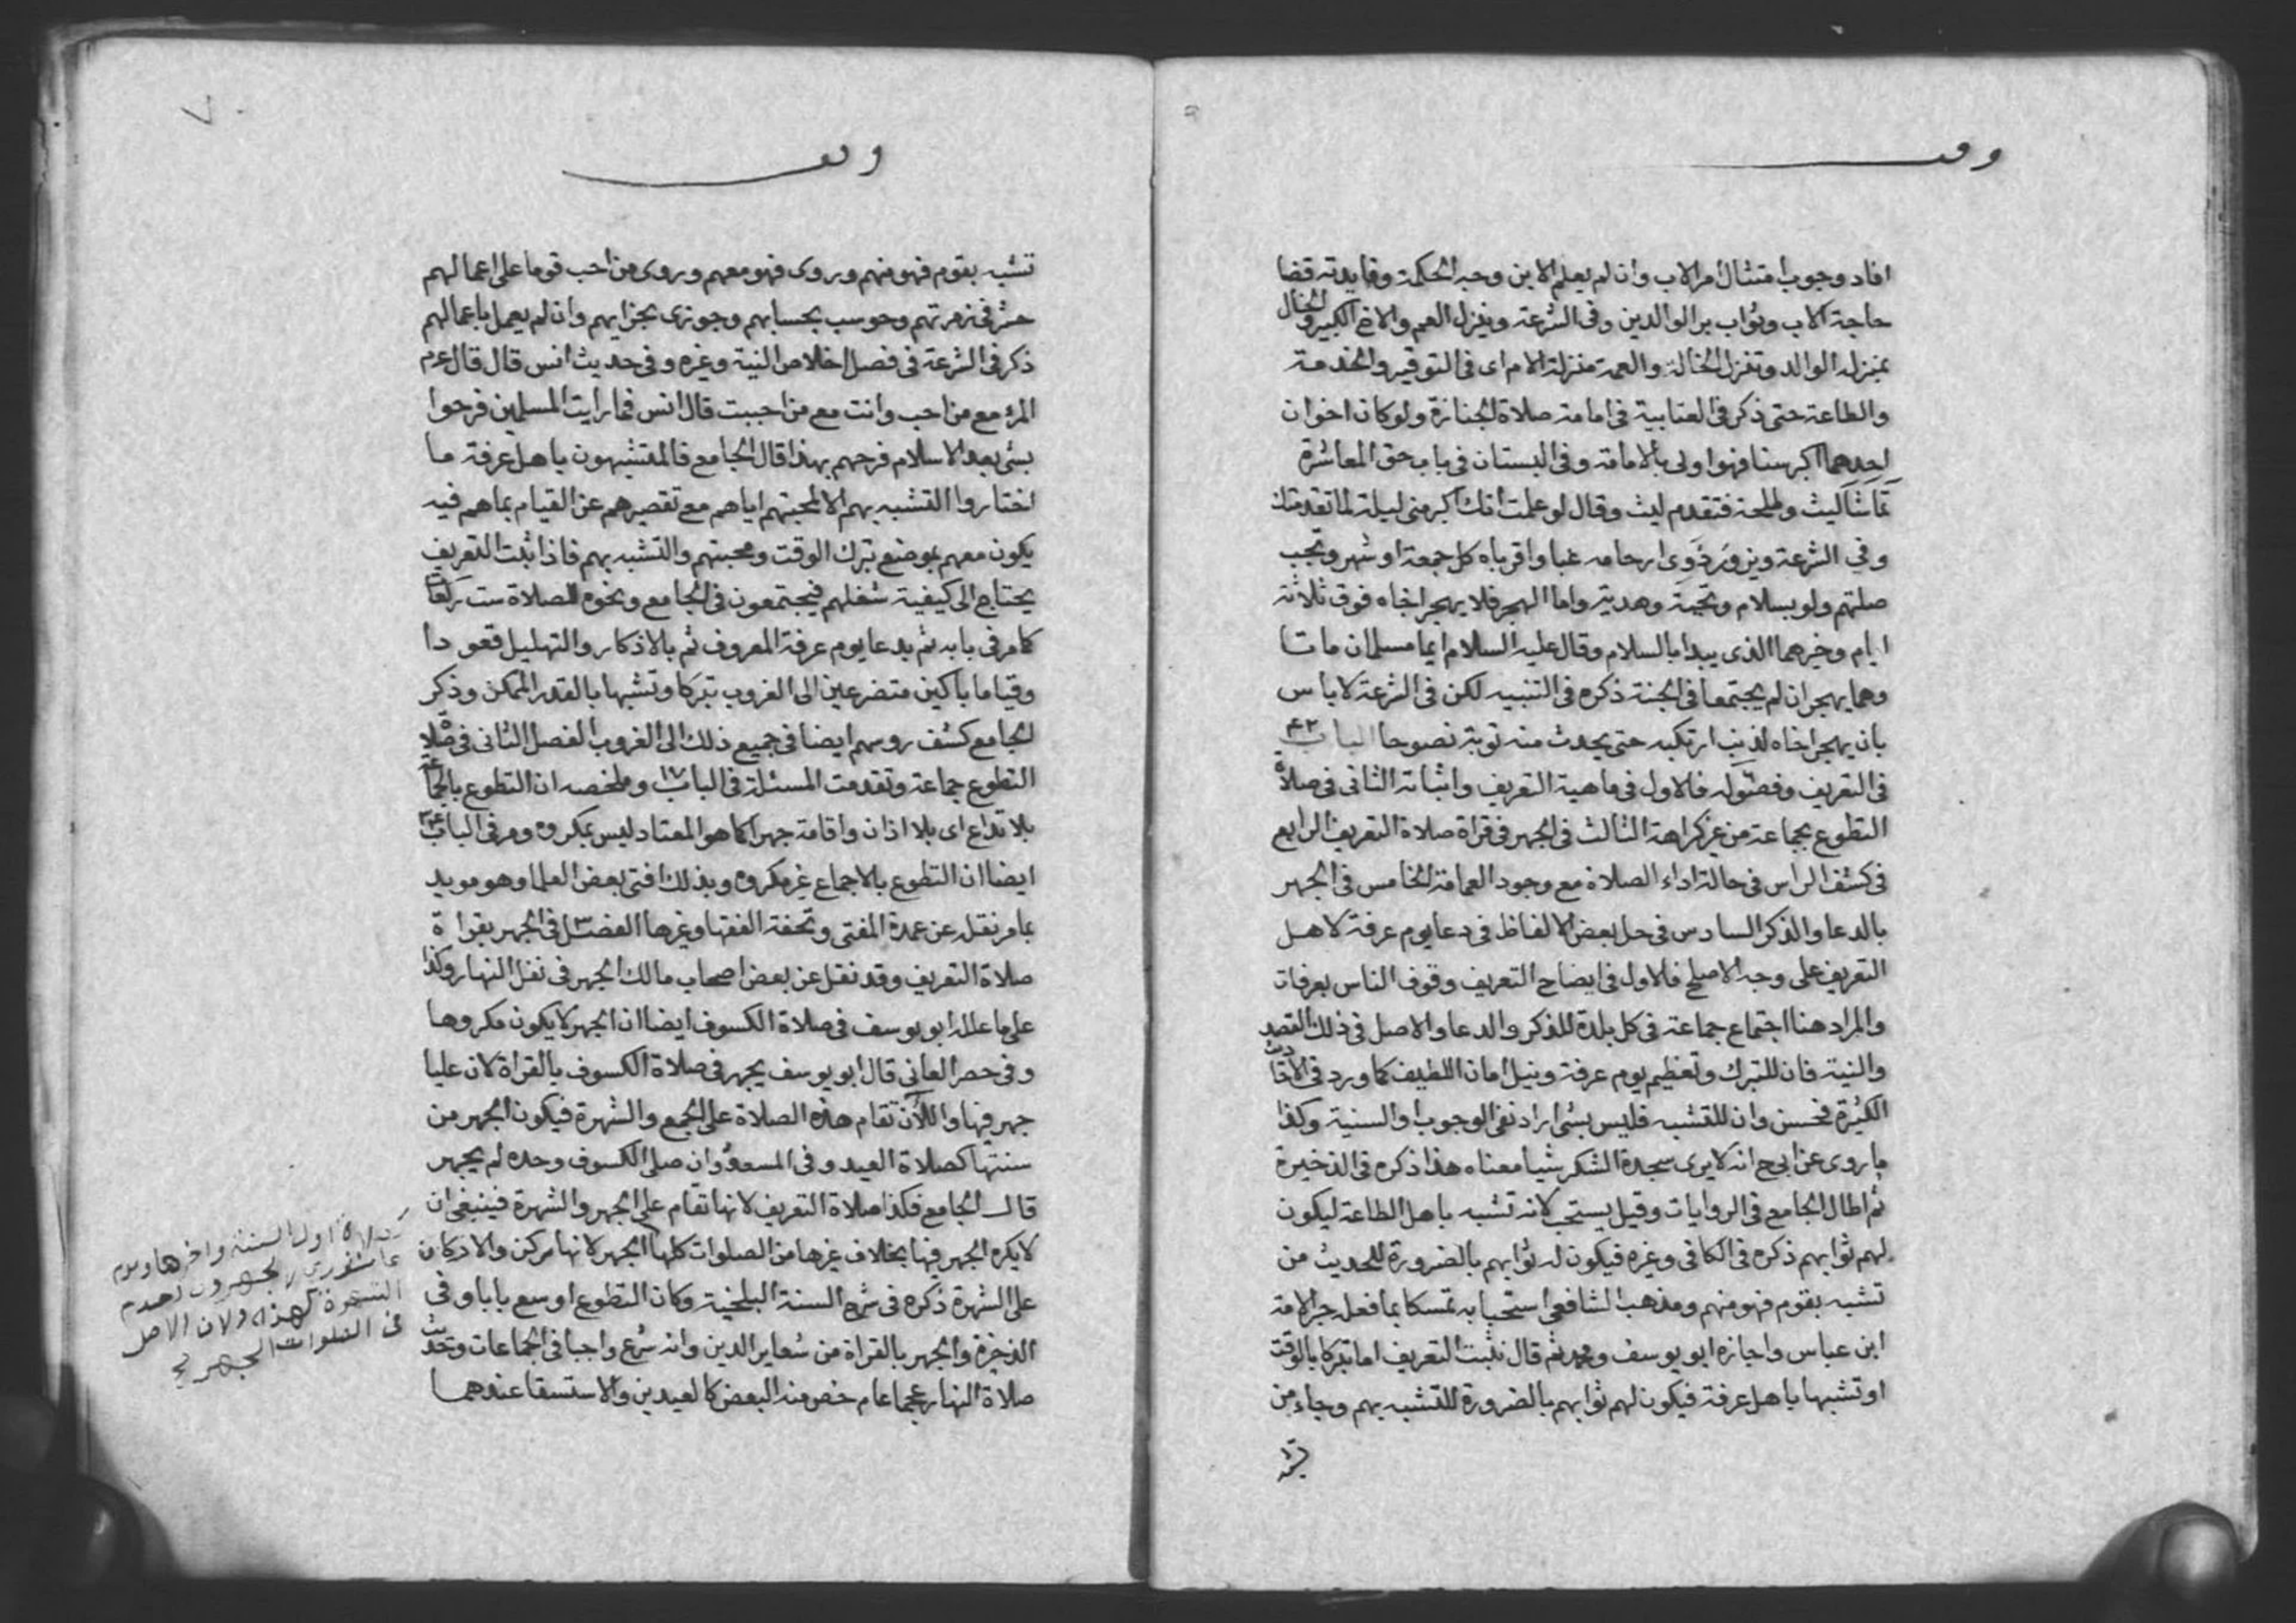 وقف
افاد وجوب امتثال امر الاب وان لم يعلم الابن وجه الحكمة وفايدته قضا
حاجة الاب وثواب بر الوالدين وفى الشرعة وينزل العم والاخ الكبير والخال
بمنزلة الوالد وتنزل الخالة والعمة منزلة الام اى فى التوقير والخدمة
والطاعة حتى ذكر فى العتابية فى امامة صلاة الجنازة ولو كان اخوان
احدهما اكبر سنا فهو اولى بالامامة وفى البستان فى باب حق المعاشرة
تماشا ليث وطلحة فتقدم ليث وقال لو علمت انك اكبر منى ليلة لما تقدمتك
وفي الشرعة ويزور ذوى ارحامه غبا واقرباه كل جمعة او شهر وتجب
صلتهم ولو بسلام وتحية وهدية واما الهجر فلا يهجر اخاه فوق ثلاثة
ايام وخيرهما الذى يبدا بالسلام وقال عليه السلام ايما مسلمان ماتا
وهما يهجران لم يجتمعا فى الجنة ذكره فى التنبيه لكن فى الشرعة لا باس
بان يهجر اخاه لذنب ارتكبه حتى يحدث منه توبة نصوحا الباب ٤٢
فى التعريف وفصوله فالاول فى ماهية التعريف واثباته الثانى فى صلاة
التطوع بجماعة من غير كراهة الثالث فى الجهر فى قراة صلاة التعريف الرابع
فى كشف الراس فى حالة اداء الصلاة مع وجود العمامة الخامس فى الجهر
بالدعا والذكر السادس فى حل بعض الالفاظ فى دعا يوم عرفة لاهل
التعريف على وجه الاصلح فالاول فى ايضاح التعريف وقوف الناس بعرفات
والمراد هنا اجتماع جماعة فى كل بلدة للذكر والدعا والاصل فى ذلك القصد
والنية فان للتبرك وتعظيم يوم عرفة ونيل امان اللطيف كما ورد فى الاحاديث
الكثيرة فحسن وان للتشبه فليس بشى اراد نفى الوجوب او السنية وكذا
ما روى عن ابى ح انه لا يرى سجدة الشكر شيا معناه هذا ذكره فى الذخيرة
ثم اطال الجامع فى الروايات وقيل يستحب لانه تشبه باهل الطاعة ليكون
لهم ثوابهم ذكره فى الكافى وغيره فيكون له ثوابهم بالضرورة للحديث من
تشبه بقوم فهو منهم ومذهب الشافعى استحبابه تمسكا بما فعل حبر الامة
ابن عباس واجازه ابو يوسف ومحمد ثم قال نثبت التعريف اما تبركا بالوقت
او تشبها باهل عرفة فيكون لهم ثوابهم بالضرورة للتشبه بهم وجاء من
تشبه
وقف
تشبه بقوم فهو منهم وروى فهو معهم وروى من احب قوما على اعمالهم
حشر فى زمرتهم وحوسب بحسابهم وجوزى بجزايهم وان لم يعمل باعمالهم
ذكر فى الشرعة فى فصل اخلاص النية وغيره وفى حديث انس قال قال عم
المرء مع من احب وانت مع من احببت قال انس فما رايت المسلمين فرحوا
بشى بعد الاسلام فرحهم بهذا قال الجامع فالمتشبهون باهل عرفة ما
اختاروا التشبه بهم الا لمحبتهم اياهم مع تقصيرهم عن القيام بما هم فيه
يكون معهم بموضع تبرك الوقت ومحبتهم والتشبه بهم فاذا ثبت التعريف
يحتاج الى كيفية شغلهم فيجتمعون فى الجامع ونحوه للصلاة ست ركعات
كما مر فى بابه ثم بدعا يوم عرفة المعروف ثم بالاذكار والتهليل قعودا
وقياما باكين متضرعين الى الغروب تبركا وتشبها بالقدر الممكن وذكر
الجامع كشف روسهم ايضا فى جميع ذلك الى الغروب الفصل الثانى فى صلاة
التطوع جماعة وتقدمت المسئلة فى الباب ١٧ وملخصه ان التطوع بالجماعة
بلا تداع اى بلا اذان واقامة جهرا كما هو المعتاد ليس بمكروه ومر فى الباب
ايضا ان التطوع بالاجماع غير مكروه وبذلك افتى بعض العلما وهو مويد
بما مر نقله عن عمدة المفتى وتحفة الفقها وغيرها الفصل ٣ فى الجهر بقراة
صلاة التعريف وقد نقل عن بعض اصحاب مالك الجهر فى نفل النهار وكذا
على ما علله ابو يوسف فى صلاة الكسوف ايضا ان الجهر لا يكون مكروها
وفى حصر العانى قال ابو يوسف يجهر فى صلاة الكسوف بالقراة لان عليا
جهر فيها والآن تقام هذه الصلاة على الجمع والشهرة فيكون الجهر من
سنتها كصلاة العيد وفى المسعودى وان صلى الكسوف وحده لم يجهر
قال الجامع فكذا صلاة التعريف لانها تقام على الجهر والشهرة فينبغى ان
لا يكره الجهر فيها بخلاف غيرها من الصلوات كلها الجهر لانها من ركن والاركان
على الشهرة ذكره فى شرح السنة البلخية وكان التطوع اوسع بابا وفى
الذخيرة والجهر بالقراة من شعاير الدين وانه شرع واجبا فى الجماعات وحديث
صلاة النهار عجما عام خص منه البعض كالعيدين والاستسقا عندهما
اول السنة واخرها ويوم
الشهرة لهذه ولان الاصل
فى الصلوات الجهر